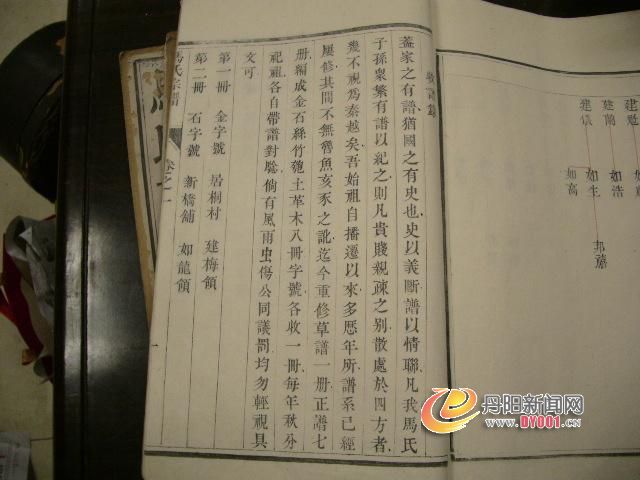 建魁
建蘭 如浩
建儀 如生 邦
如高
蓋家之有譜猶國之有史也史以義斷譜以情聯凡我馬氏
子孫衆繁有譜以紀之則凡貴賤親疎之别散處於四方者
幾不視爲秦越矣吾始祖自播遷以來多歷年所譜系已經
屢修其間不無魯魚亥豕之訛迄今重修草譜一册正譜七
册編成金石絲竹匏土革木八冊字號各收一冊每年秋分
祀祖各自帶譜對驗倘有風雨虫傷公同議罰均勿輕視具
文可
第一冊 金字號 居桐村 建梅領
第二冊 石字號 新橋舖 如龍領
馬氏宗譜 卷之一
丹阳新闻网
WWW.DY001.CN